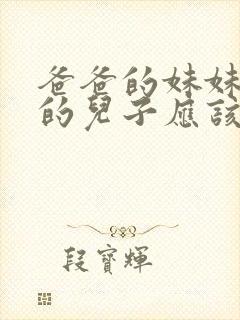 爸爸的妹妹
的兒子應該
段寶輝